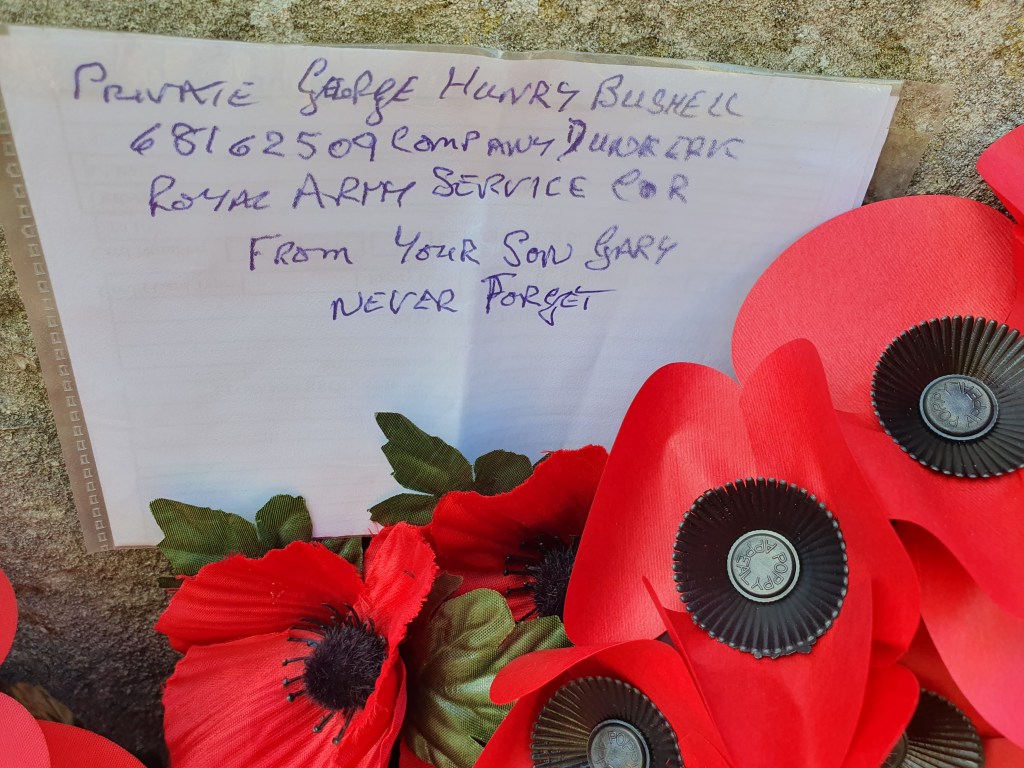 PRIVATE GEORGE HUNRY BUSHELL
68162509 COMPANY DUNKERK
ROYAL ARMY SERVICE COR
FROM YOUR SON GARY
NEVER FORGET
POPPY APPEAL
POPPY APPEAL
PO